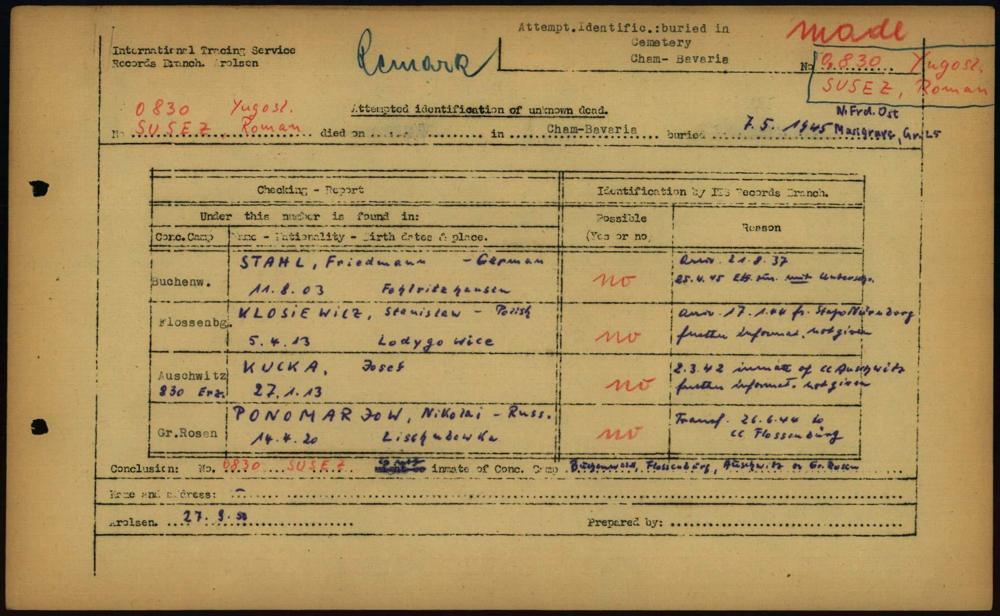 International Tracing Service
Records Branch. Arolsen
Remark
Attempt.Identific.:buried in
Cemetery
Cham- Bavaria
made
No 0830 Yugosl.
SUSEZ, Roman
0830 Yugosl.
Attempted identification of unknown dead.
N.Frd. Ost
No SUSEZ, Roman died on in Cham-Bavaria buried 7.5. 1945 Massgrave, Gr. 25
Checking - Report
Identification by ITS Records Branch.
Under this number is found in:
Possible
(Yes or no)
Reason
Conc.Camp
Name - Nationality - Birth dates & place.
Buchenw.
STAHL, Friedmann - German
11.8.03
no
21.8.37
25.4.45
Flossenbg.
KLOSIEWICZ, Stanislaw - Polish
5.4.13 Lodygowice
no
17.1.44 fr. Stapo Nürnberg
further informat. not given
Auschwitz
830 Erz.
KUCKA, Josef
27.1.13
no
2.3.42 inmate of cc Auschwitz
further informat. not given
Gr.Rosen
PONOMARJOW, Nikolai - Russ.
14.4.20
no
Transf. 26.6.44 to
cc Flossenbürg
Conclusion: No. 0830 SUSEZ inmate of Conc. Camp Buchenwald, Flossenbürg, Auschwitz or Gr. Rosen
Name and address: -
Arolsen. 27. 9. 50
Prepared by: